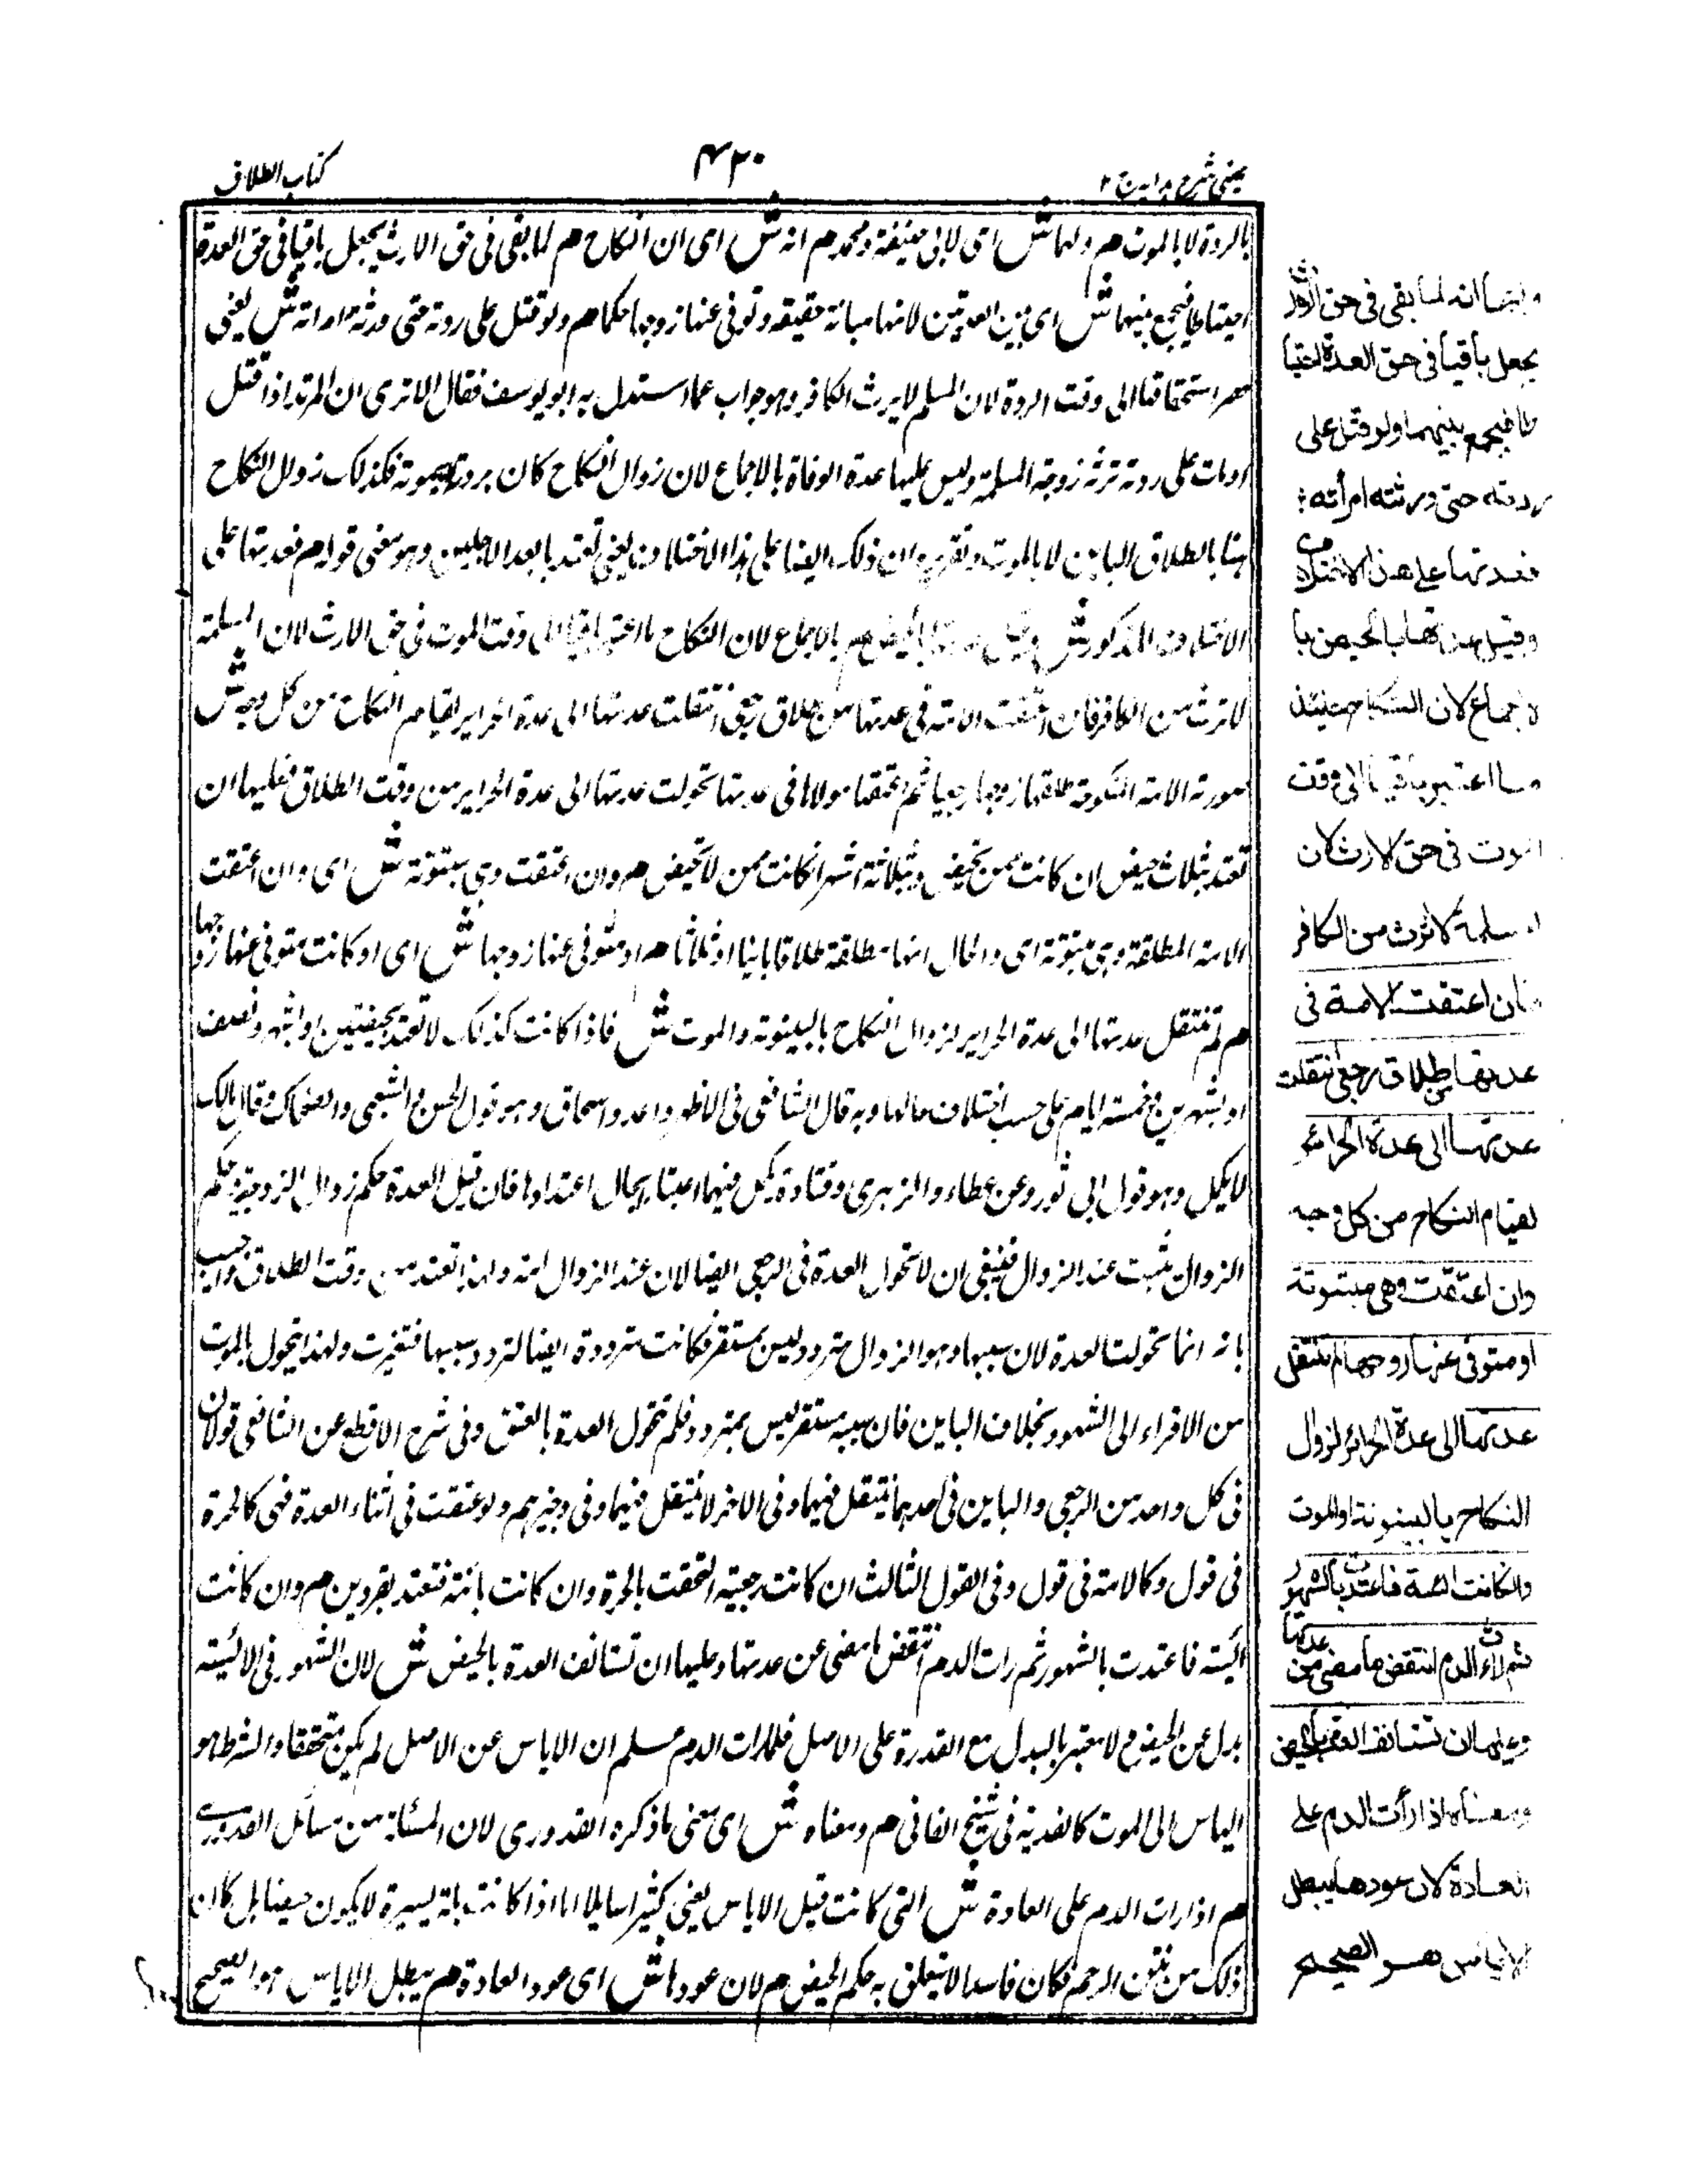 عینی شرح ہدایہ ج ۲
۴۲۰
کتاب الطلاق
بالردة لا بالموت م ولهما ش ای لابی حنیفة ومحمد م انه ش ای ان النکاح م لما بقی فی حق الارث یجعل باقیا فی حق العدة
احتیاطا فیجمع بینهما ش ای بین العدتین لانها مبانة حقیقة وتوفی عنها زوجها حکما م ولو قتل علی ردته حتی ورثته امراته ش یعنی
استحقاقها الی وقت الردة لان المسلم لا یرث الکافر وهو جواب عما استدل به ابو یوسف فقال الا تری ان المرتد اذا قتل
او مات علی ردته ترثه زوجته المسلمة ولیس علیها عدة الوفاة بالاجماع لان زوال النکاح کان بردته لا بموته فکذلک زوال النکاح
هنا بالطلاق الباین لا بالموت وتقریره ان ذلک ایضا علی هذا الاختلاف یعنی تعتد بابعد الاجلین وهو معنی قوله م فعدتها علی
الاختلاف المذکور ش وقیل عدتها بالحیض م بالاجماع لان النکاح ما اعتبر باقیا الی وقت الموت فی حق الارث لان المسلمة
لا ترث من الکافر فان اعتقت الامة فی عدتها من طلاق رجعی انتقلت عدتها الی عدة الحرایر لقیام النکاح من کل وجه ش
صورته الامة المنکوحة طلقها زوجها رجعیا ثم اعتقها مولاها فی عدتها تحولت عدتها الی عدة الحرایر من وقت الطلاق فعلیها ان
تعتد بثلاث حیض ان کانت ممن تحیض وبثلاثة اشهر ان کانت ممن لا تحیض م وان اعتقت وهی مبتوتة ش ای وان اعتقت
الامة المطلقة وهی مبتوتة ای والحال انها مطلقة طلاقا باینا او ثلاثا م او متوفی عنها زوجها ش ای او کانت متوفی عنها زوجها
م لم تنتقل عدتها الی عدة الحرایر لزوال النکاح بالبینونة والموت ش فاذا کانت کذلک لا تعتد بحیضتین او شهر ونصف
او بشهرین وخمسة ایام علی حسب اختلاف حالها وبه قال الشافعی فی الاظهر واحمد واسحاق وهو قول الحسن والشعبی والضحاک وقال مالک
لا یکمل وهو قول ابی ثور وعن عطاء والزهری وقتادة یکمل فیهما اعتبارا بحال اعتدادها فان قیل العدة حکم زوال الزوجیة وحکم
الزوال یثبت عند الزوال فینبغی ان لا تحول العدة فی الرجعی ایضا لان عند الزوال امة ولهذا تعتد من وقت الطلاق واجیب
بانه انما تحولت العدة لان سببها وهو الزوال متردد لیس بمستقر فکانت مترددة ایضا لتردد سببها فتغیرت ولهذا یتحول بالموت
من الاقراء الی الشهور بخلاف الباین فان سببه مستقر لیس بمتردد فلم تتحول العدة بالعتق وفی شرح الاقطع عن الشافعی قولان
فی کل واحد من الرجعی والباین فی احدهما تنتقل فیهما وفی الاخر لا تنتقل فیهما وفی وجیزهم ولو عتقت فی اثناء العدة فهی کالحرة
فی قول وکالامة فی قول وفی القول الثالث ان کانت رجعیة التحقت بالحرة وان کانت بائنة فتعتد بقروین م وان کانت
آئیسة فاعتدت بالشهور ثم رات الدم انتقض ما مضی عن عدتها وعلیها ان تستانف العدة بالحیض ش لان الشهور فی الائیسة
بدل عن الحیض ولا معتبر بالبدل مع القدرة علی الاصل فلما رات الدم علم ان الایاس عن الاصل لم یکن متحققا والشرط هو
الیاس الی الموت کالفدیة فی الشیخ الفانی م ومعناه ش ای معنی ما ذکره القدوری لان المسئلة من مسائل القدوری
م اذا رات الدم علی العادة ش التی کانت قبل الایاس یعنی کثیرا سایلا اما اذا کانت بلة یسیرة لا یکون حیضا بل کان
ذلک من نتن الرحم فکان فاسدا لا یتعلق به حکم الحیض م لان عودها ش ای عود العادة م یبطل الایاس هو الصحیح
ولهما انه لما بقی فی حق الارث
یجعل باقیا فی حق العدة احتیا
طا فیجمع بینهما ولو قتل علی
ردته حتی ورثته امرأته
فعدتها علی هذا الاختلاف
وقیل عدتها بالحیض با
لاجماع لان النکاح حینئذ
ما اعتبر باقیا الی وقت
الموت فی حق الارث لان
المسلمة لا ترث من الکافر
فان اعتقت الامة فی
عدتها من طلاق رجعی انتقلت
عدتها الی عدة الحرائر
لقیام النکاح من کل وجه
وان اعتقت وهی مبتوتة
او متوفی عنها زوجها لم تنتقل
عدتها الی عدة الحرائر لزوال
النکاح بالبینونة او الموت
وان کانت آئسة فاعتدت بالشهور
ثم رأت الدم انتقض ما مضی من عدتها
وعلیها ان تستانف العدة بالحیض
ومعناه اذا رأت الدم علی
العادة لان عودها یبطل
الایاس هو الصحیح